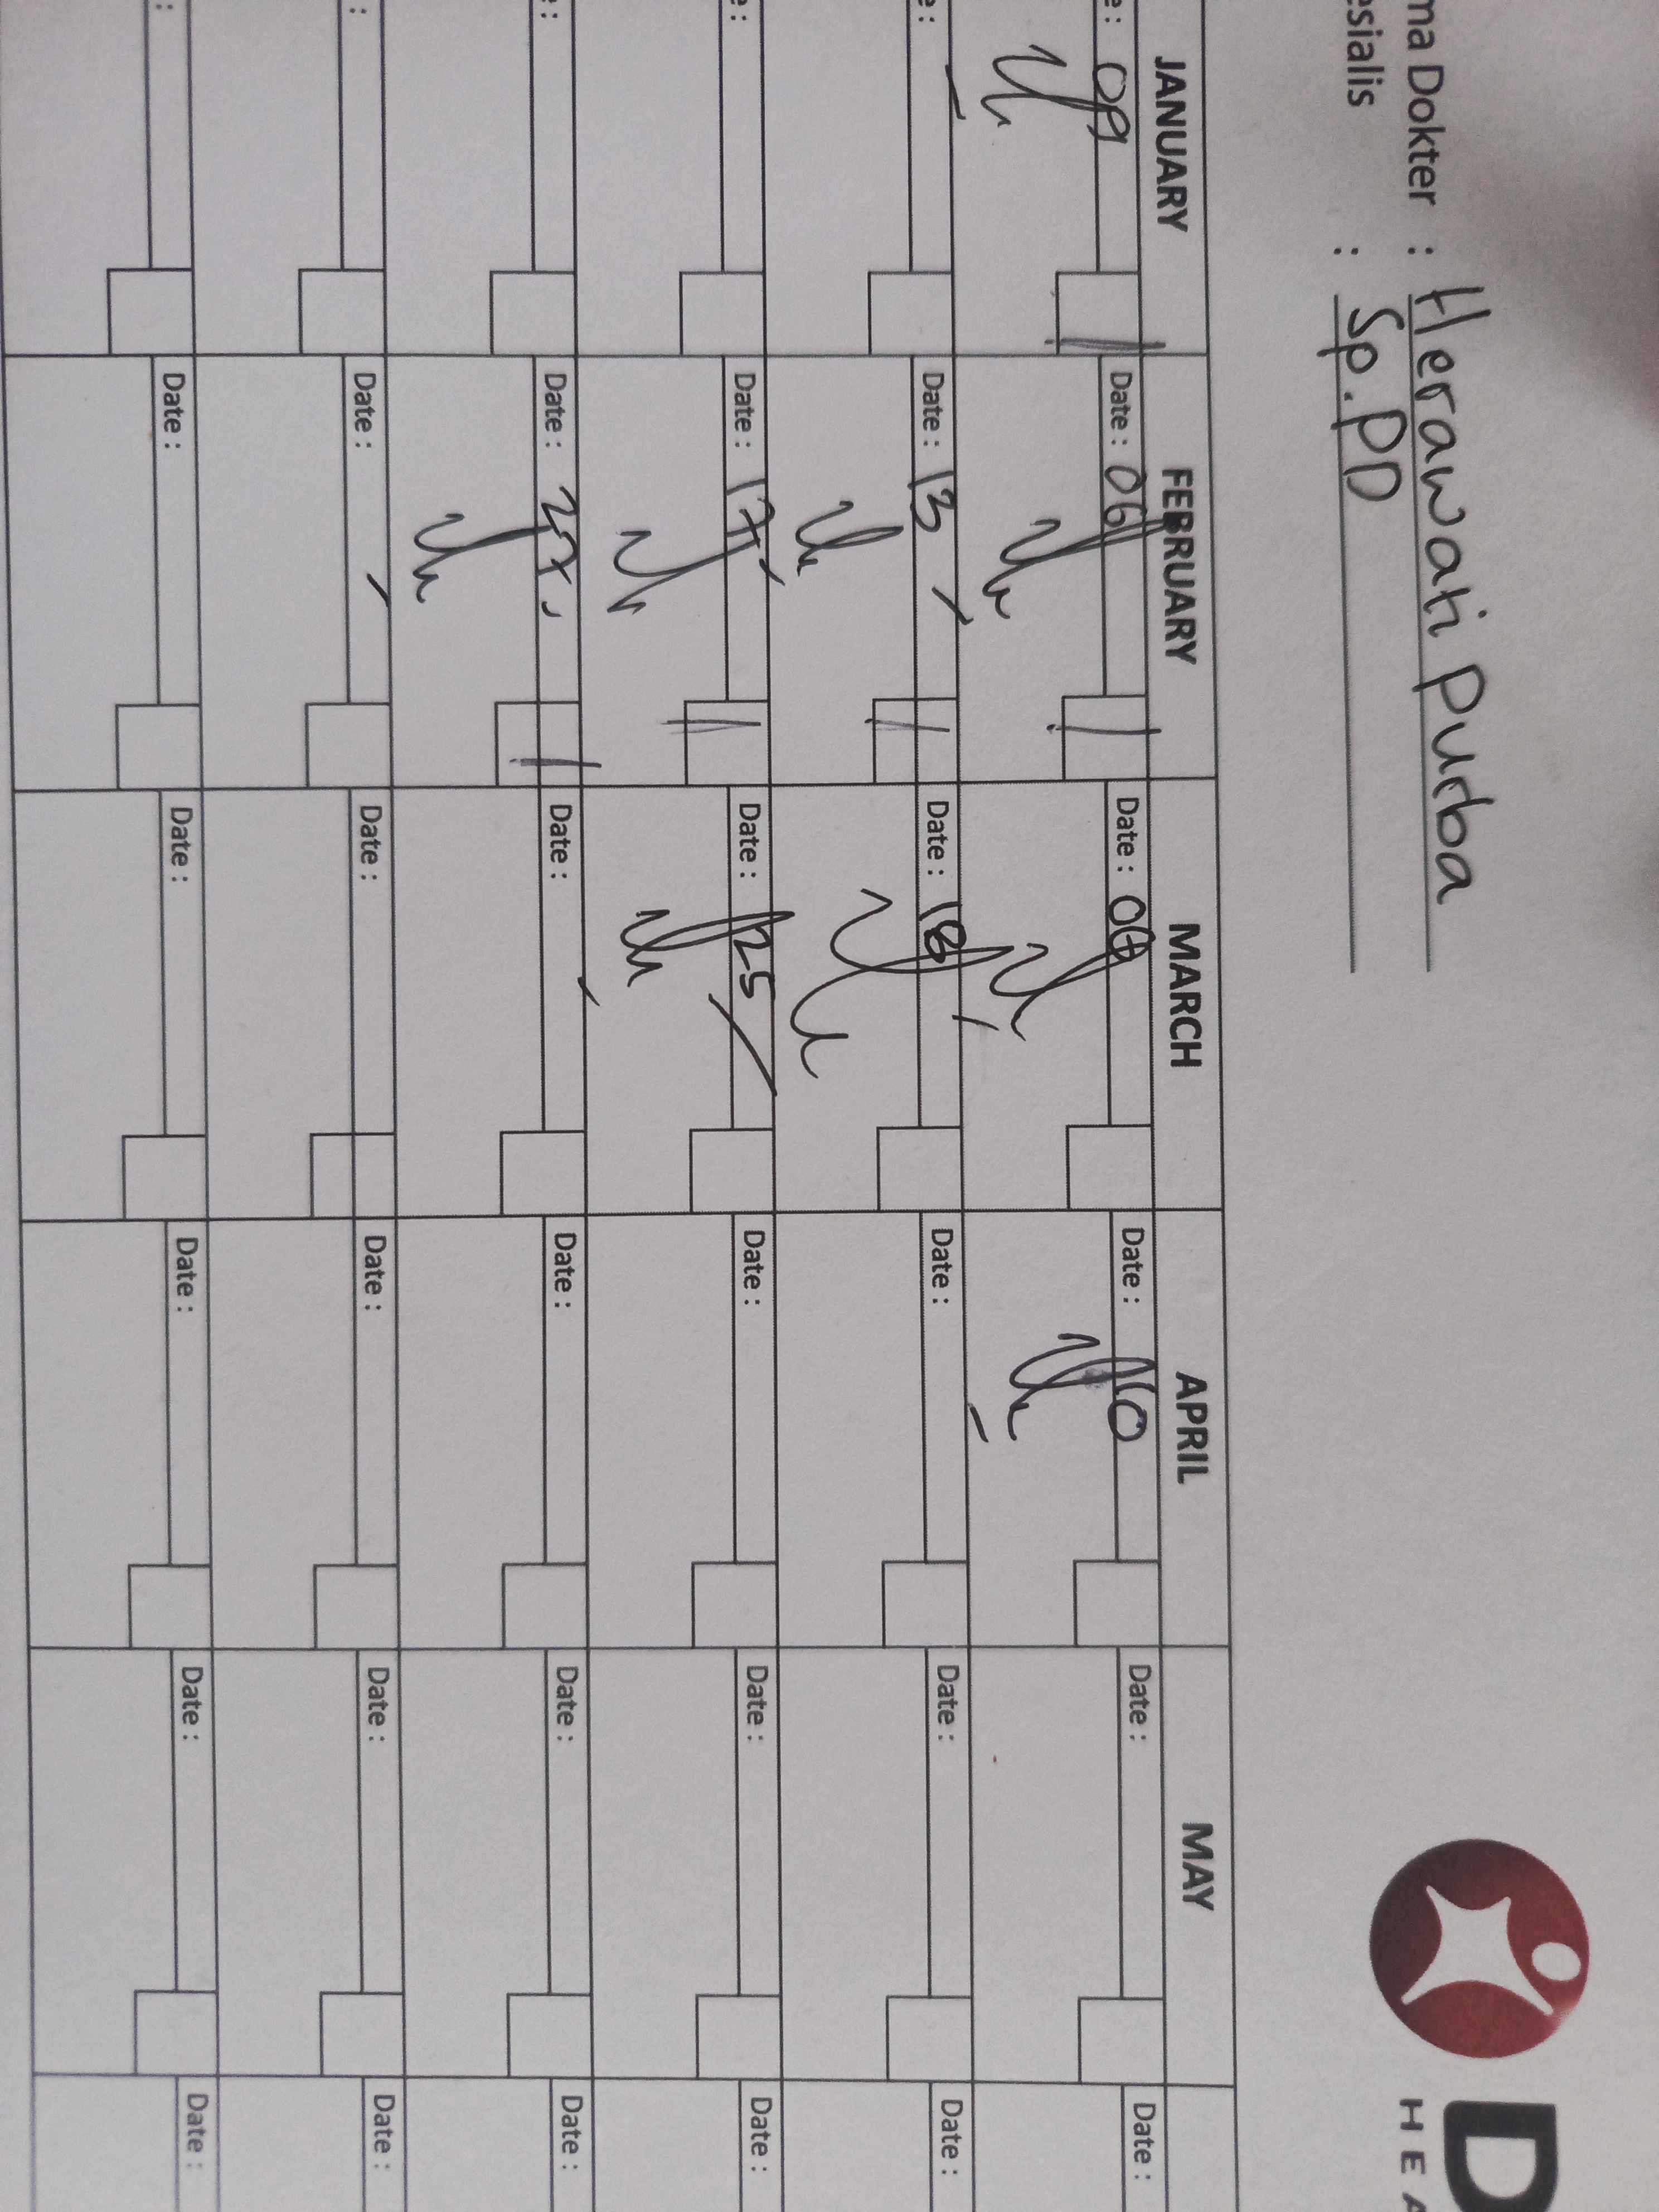 ma Dokter : Herawati Purba
esialis : Sp.PD
D
HEA
JANUARY FEBRUARY MARCH APRIL MAY
e: 09 Date: 06 Date: Date: 10 Date: Date:
e: Date: 13 Date: 18 Date: Date: Date:
e: Date: 17 Date: 25 Date: Date: Date:
e: Date: 27 Date: Date: Date: Date:
: Date: Date: Date: Date: Date:
: Date: Date: Date: Date: Date: